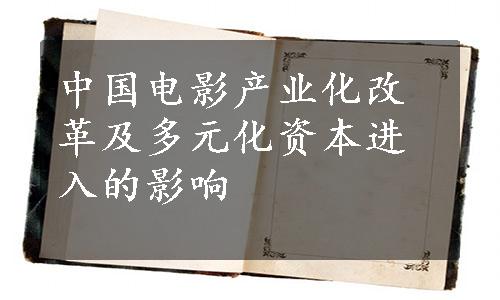 中国电影产业化改
革及多元化资本进
入的影响